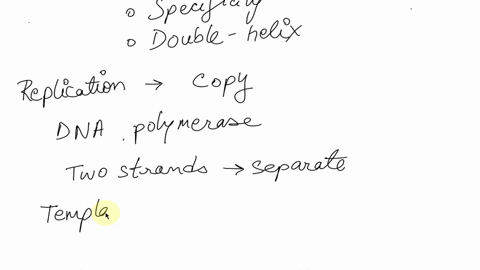 o Specificity
o Double-helix
Replication → copy
DNA polymerase
Two strands → separate
Templa